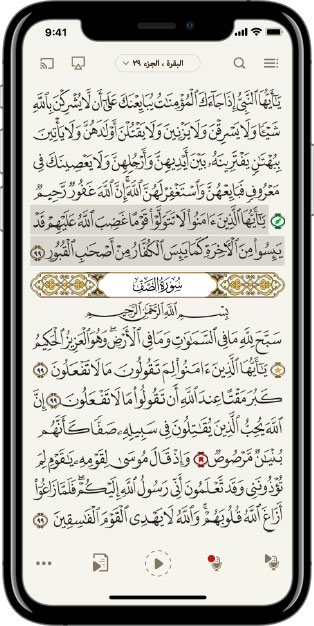 9:41
البقرة ، الجزء ٢٩
يَـٰٓأَيُّهَا ٱلنَّبِىُّ إِذَا جَآءَكَ ٱلْمُؤْمِنَـٰتُ يُبَايِعْنَكَ عَلَىٰٓ أَن لَّا يُشْرِكْنَ بِٱللَّهِ
شَيْـًٔا وَلَا يَسْرِقْنَ وَلَا يَزْنِينَ وَلَا يَقْتُلْنَ أَوْلَـٰدَهُنَّ وَلَا يَأْتِينَ
بِبُهْتَـٰنٍ يَفْتَرِينَهُۥ بَيْنَ أَيْدِيهِنَّ وَأَرْجُلِهِنَّ وَلَا يَعْصِينَكَ فِى
مَعْرُوفٍ فَبَايِعْهُنَّ وَٱسْتَغْفِرْ لَهُنَّ ٱللَّهَ إِنَّ ٱللَّهَ غَفُورٌ رَّحِيمٌ
يَـٰٓأَيُّهَا ٱلَّذِينَ ءَامَنُوا۟ لَا تَتَوَلَّوْا۟ قَوْمًا غَضِبَ ٱللَّهُ عَلَيْهِمْ قَدْ
يَئِسُوا۟ مِنَ ٱلْـَٔاخِرَةِ كَمَا يَئِسَ ٱلْكُفَّارُ مِنْ أَصْحَـٰبِ ٱلْقُبُورِ ٩٩
سُورَةُ الصَّفِّ
بِسْمِ ٱللَّهِ ٱلرَّحْمَـٰنِ ٱلرَّحِيمِ
سَبَّحَ لِلَّهِ مَا فِى ٱلسَّمَـٰوَٰتِ وَمَا فِى ٱلْأَرْضِ وَهُوَ ٱلْعَزِيزُ ٱلْحَكِيمُ
يَـٰٓأَيُّهَا ٱلَّذِينَ ءَامَنُوا۟ لِمَ تَقُولُونَ مَا لَا تَفْعَلُونَ ٩٩
كَبُرَ مَقْتًا عِندَ ٱللَّهِ أَن تَقُولُوا۟ مَا لَا تَفْعَلُونَ ٩٩ إِنَّ
ٱللَّهَ يُحِبُّ ٱلَّذِينَ يُقَـٰتِلُونَ فِى سَبِيلِهِۦ صَفًّا كَأَنَّهُم
بُنْيَـٰنٌ مَّرْصُوصٌ وَإِذْ قَالَ مُوسَىٰ لِقَوْمِهِۦ يَـٰقَوْمِ لِمَ
تُؤْذُونَنِى وَقَد تَّعْلَمُونَ أَنِّى رَسُولُ ٱللَّهِ إِلَيْكُمْ فَلَمَّا زَاغُوٓا۟
أَزَاغَ ٱللَّهُ قُلُوبَهُمْ وَٱللَّهُ لَا يَهْدِى ٱلْقَوْمَ ٱلْفَـٰسِقِينَ ٩٩